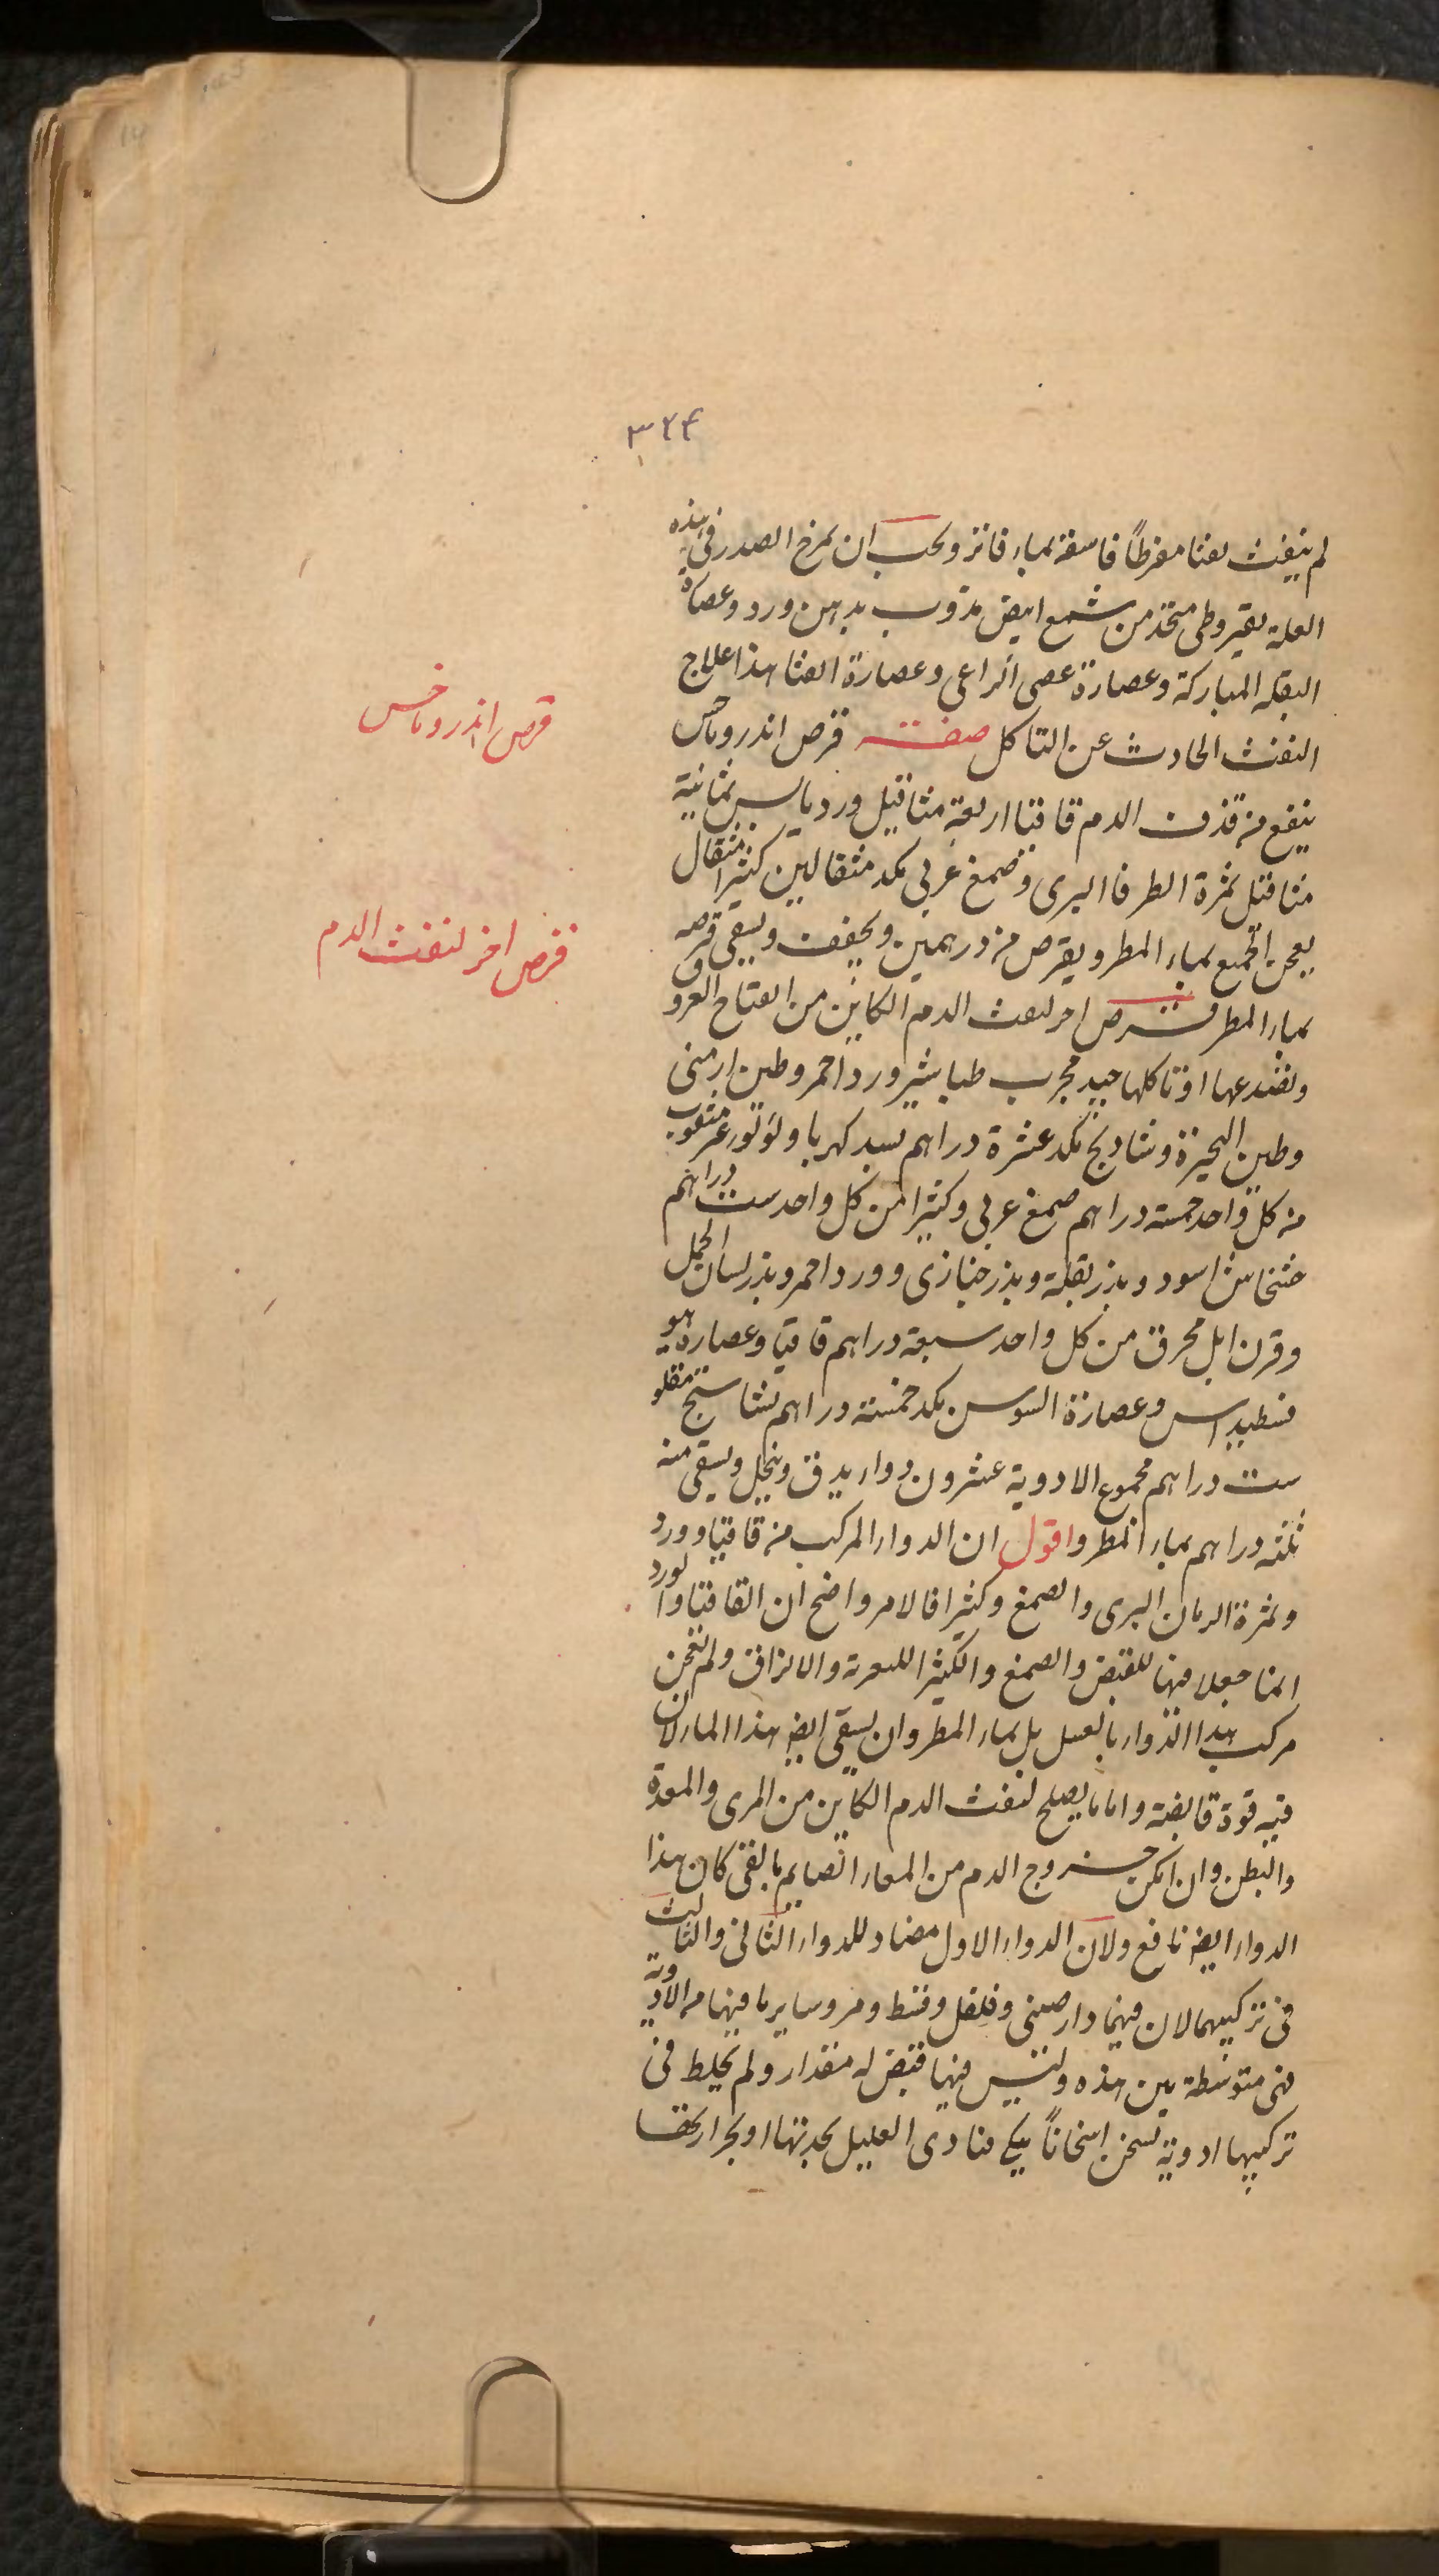 ٣٢٤
لم ينفث نفثا مفرطاً فاسقه بماء فاتر ويجب ان يمرخ الصدر فى هذه
العلة بقيروطى متخذ من شمع ابيض مذوب بدهن ورد وعصارة
البقلة المباركة وعصارة عصى الراعى وعصارة القثا هذا علاج
النفث الحادث عن التاكل صفة قرص اندروماخس
ينفع من قذف الدم قاقيا اربعة مثاقيل ورد يابس ثمانية
مثاقيل ثمرة الطرفا البرى وصمغ عربى بكد مثقالين كثيرا مثقال
يعجن الجميع بماء المطر ويقرص من درهمين ويجفف ويسقى قرصه
بماء المطر قرص اخر لنفث الدم الكاين من انفتاح العروق
وتصدعها او تاكلها جيد مجرب طباشير ورد احمر وطين ارمنى
وطين البحيرة وشادنج بكد عشرة دراهم بسد كهربا ولؤلؤ غير مثقوب
من كل واحد خمسة دراهم صمغ عربى وكثيرا من كل واحد ست دراهم
خشخاش اسود وبزر بقلة وبزر خبازى وورد احمر وبزر لسان الحمل
وقرن ايل محرق من كل واحد سبعة دراهم قاقيا وعصارة هيو
فسطيداس وعصارة السوس بكد خمسة دراهم نشاستج مقلو
ست دراهم مجموع الادوية عشرون دواء يدق وينخل ويسقى منه
ثلثه دراهم بماء المطر واقول ان الدواء المركب من قاقيا وورد
وثمرة الرمان البرى والصمغ وكثيرا فالامر واضح ان القاقيا والورد
انما جعلا فيها للقبض والصمغ والكثيرا للتغرية والالزاق ولم نعجن
مركب هذا الدواء بالعسل بل بماء المطر وان يسقى ايضا هذا الماء لان
فيه قوة قابضة واما ما يصلح لنفث الدم الكاين من المرى والمعدة
والبطن وان امكن خروج الدم من المعاء الصايم بالقى كان هذا
الدواء ايضا نافع ولان الدواء الاول مضاد للدواء الثانى والثالث
فى تركيبهما لان فيهما دارصينى وفلفل وقسط ومر وساير ما فيهما من الادوية
فهى متوسطة بين هذه وليس فيها قبض له مقدار ولم يخلط فى
تركيبها ادوية تسخن اسخاناً يكى فتاذى العليل بحدتها او بحرارتها
قرص اندروماخس
قرص اخر لنفث الدم